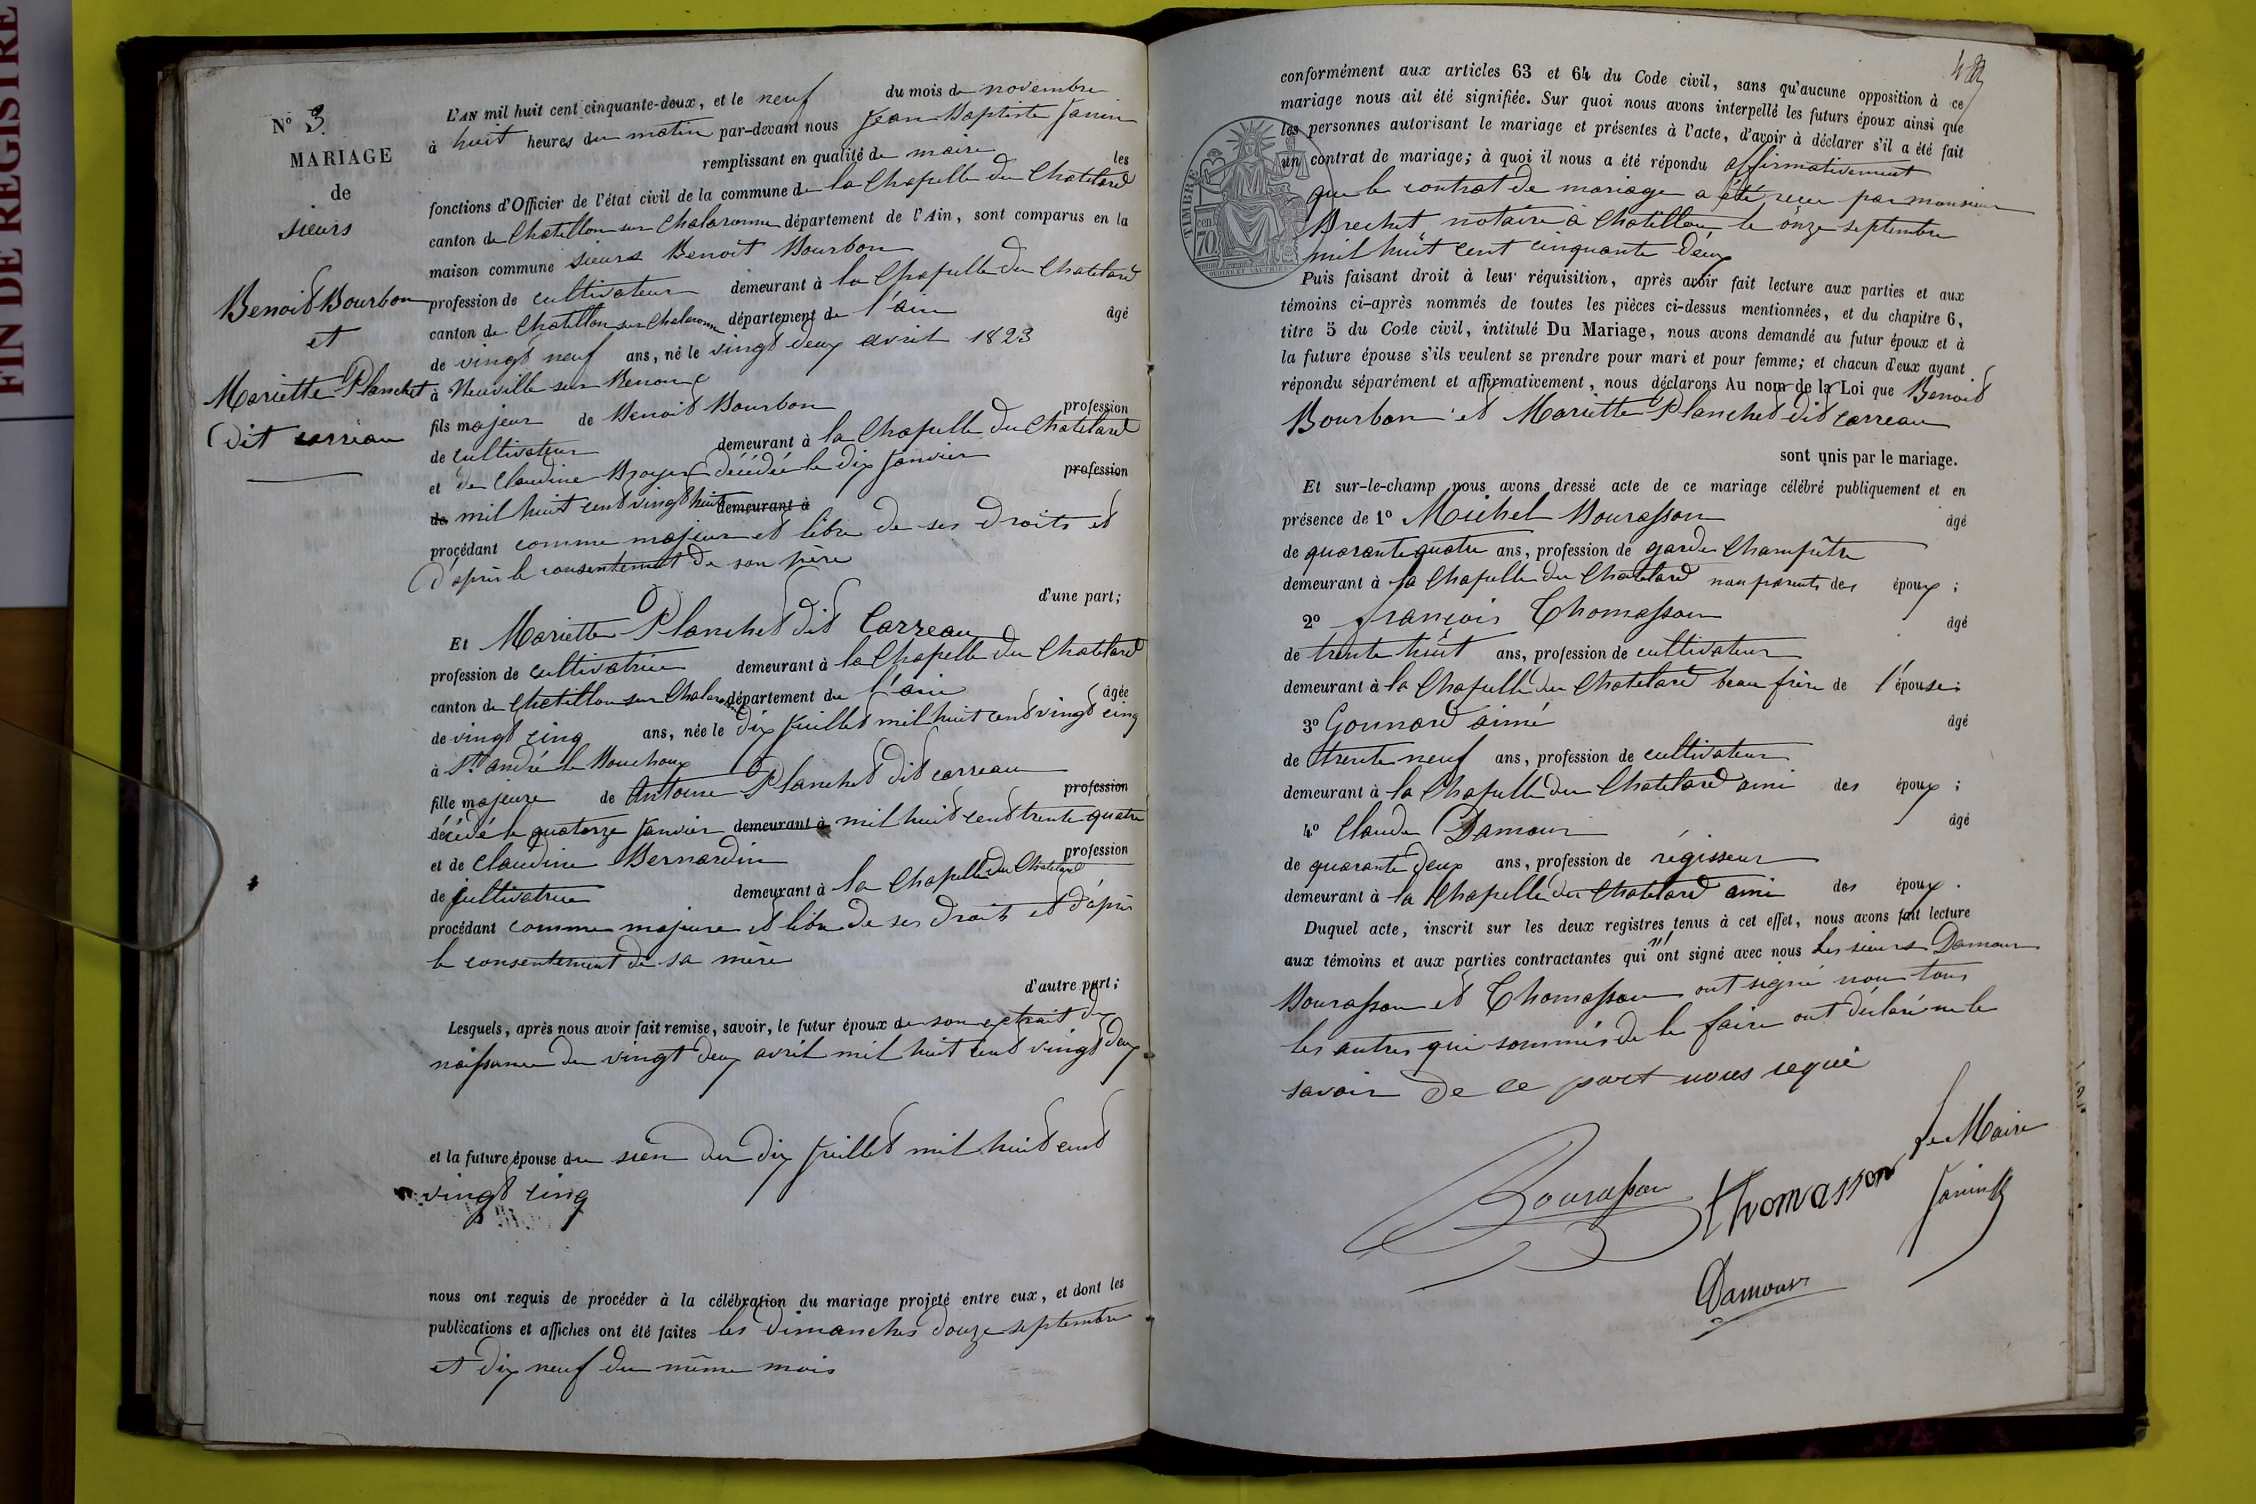 FIN DE REGISTRE
N° 3
MARIAGE
de
sieurs
Benoit Bourbon
et
Mariette Planchet
dit carreau
L'AN mil huit cent cinquante-deux, et le neuf du mois de novembre
à huit heures du matin par-devant nous Jean Baptiste Janin
remplissant en qualité de maire les
fonctions d'Officier de l'état civil de la commune de la Chapelle du Chatelard
canton de Chatillon sur Chalaronne département de l'Ain, sont comparus en la
maison commune sieurs Benoit Bourbon
profession de cultivateur demeurant à la Chapelle du Chatelard
canton de Chatillon sur Chalaronne département de l'ain âgé
de vingt neuf ans, né le vingt deux avril 1823
à Neuville sur Renon
fils majeur de Benoit Bourbon profession
de cultivateur demeurant à la Chapelle du Chatelard
et de Claudine Broyer décédée le dix Janvier profession
de mil huit cent vingt huit demeurant à
procédant comme majeur et libre de ses droits et
d'après le consentement de son père
d'une part;
Et Mariette Planchet dit Carreau
profession de cultivatrice demeurant à la Chapelle du Chatelard
canton de Chatillon sur Chalaronne département de l'ain âgée
de vingt cinq ans, née le dix Juillet mil huit cent vingt cinq
à St. andré le Bouchoux
fille majeure de Antoine Planchet dit carreau profession
décédé le quatorze Janvier demeurant à mil huit cent trente quatre
et de Claudine Bernardin profession
de cultivatrice demeurant à la Chapelle du Chatelard
procédant comme majeure et libre de ses droits et d'après
le consentement de sa mère
d'autre part;
Lesquels, après nous avoir fait remise, savoir, le futur époux de son extrait de
naissance du vingt deux avril mil huit cent vingt deux
et la future épouse du sien du dix Juillet mil huit cent
vingt cinq
nous ont requis de procéder à la célébration du mariage projeté entre eux, et dont les
publications et affiches ont été faites les dimanches douze septembre
et dix neuf du même mois
conformément aux articles 63 et 64 du Code civil, sans qu'aucune opposition à ce
mariage nous ait été signifiée. Sur quoi nous avons interpellé les futurs époux ainsi que
les personnes autorisant le mariage et présentes à l'acte, d'avoir à déclarer s'il a été fait
un contrat de mariage; à quoi il nous a été répondu affirmativement
que le contrat de mariage a été reçu par monsieur
Brechet notaire à Chatillon le onze septembre
mil huit cent cinquante deux
TIMBRE
70
Puis faisant droit à leur réquisition, après avoir fait lecture aux parties et aux
témoins ci-après nommés de toutes les pièces ci-dessus mentionnées, et du chapitre 6,
titre 5 du Code civil, intitulé Du Mariage, nous avons demandé au futur époux et à
la future épouse s'ils veulent se prendre pour mari et pour femme; et chacun d'eux ayant
répondu séparément et affirmativement, nous déclarons Au nom de la Loi que Benoit
Bourbon et Mariette Planchet dit carreau
sont unis par le mariage.
Et sur-le-champ nous avons dressé acte de ce mariage célébré publiquement et en
présence de 1° Michel Bourasson âgé
de quarante quatre ans, profession de garde Champêtre
demeurant à la Chapelle du Chatelard non parents des époux;
2° françois Thomasson âgé
de trente huit ans, profession de cultivateur
demeurant à la Chapelle du Chatelard beau frère de l'épouse;
3° Gonnard aimé âgé
de trente neuf ans, profession de cultivateur
demeurant à la Chapelle du Chatelard ami des époux;
4° Claude Damour âgé
de quarante deux ans, profession de régisseur
demeurant à la Chapelle du Chatelard ami des époux.
Duquel acte, inscrit sur les deux registres tenus à cet effet, nous avons fait lecture
aux témoins et aux parties contractantes qui n'ont signé avec nous Les sieurs Damour
Bourasson et Thomasson ont signé non tous
les autres qui sommés de le faire ont déclaré ne le
savoir de ce part nous requis
Bourasson
Thomasson
Le Maire
Janin
Damour